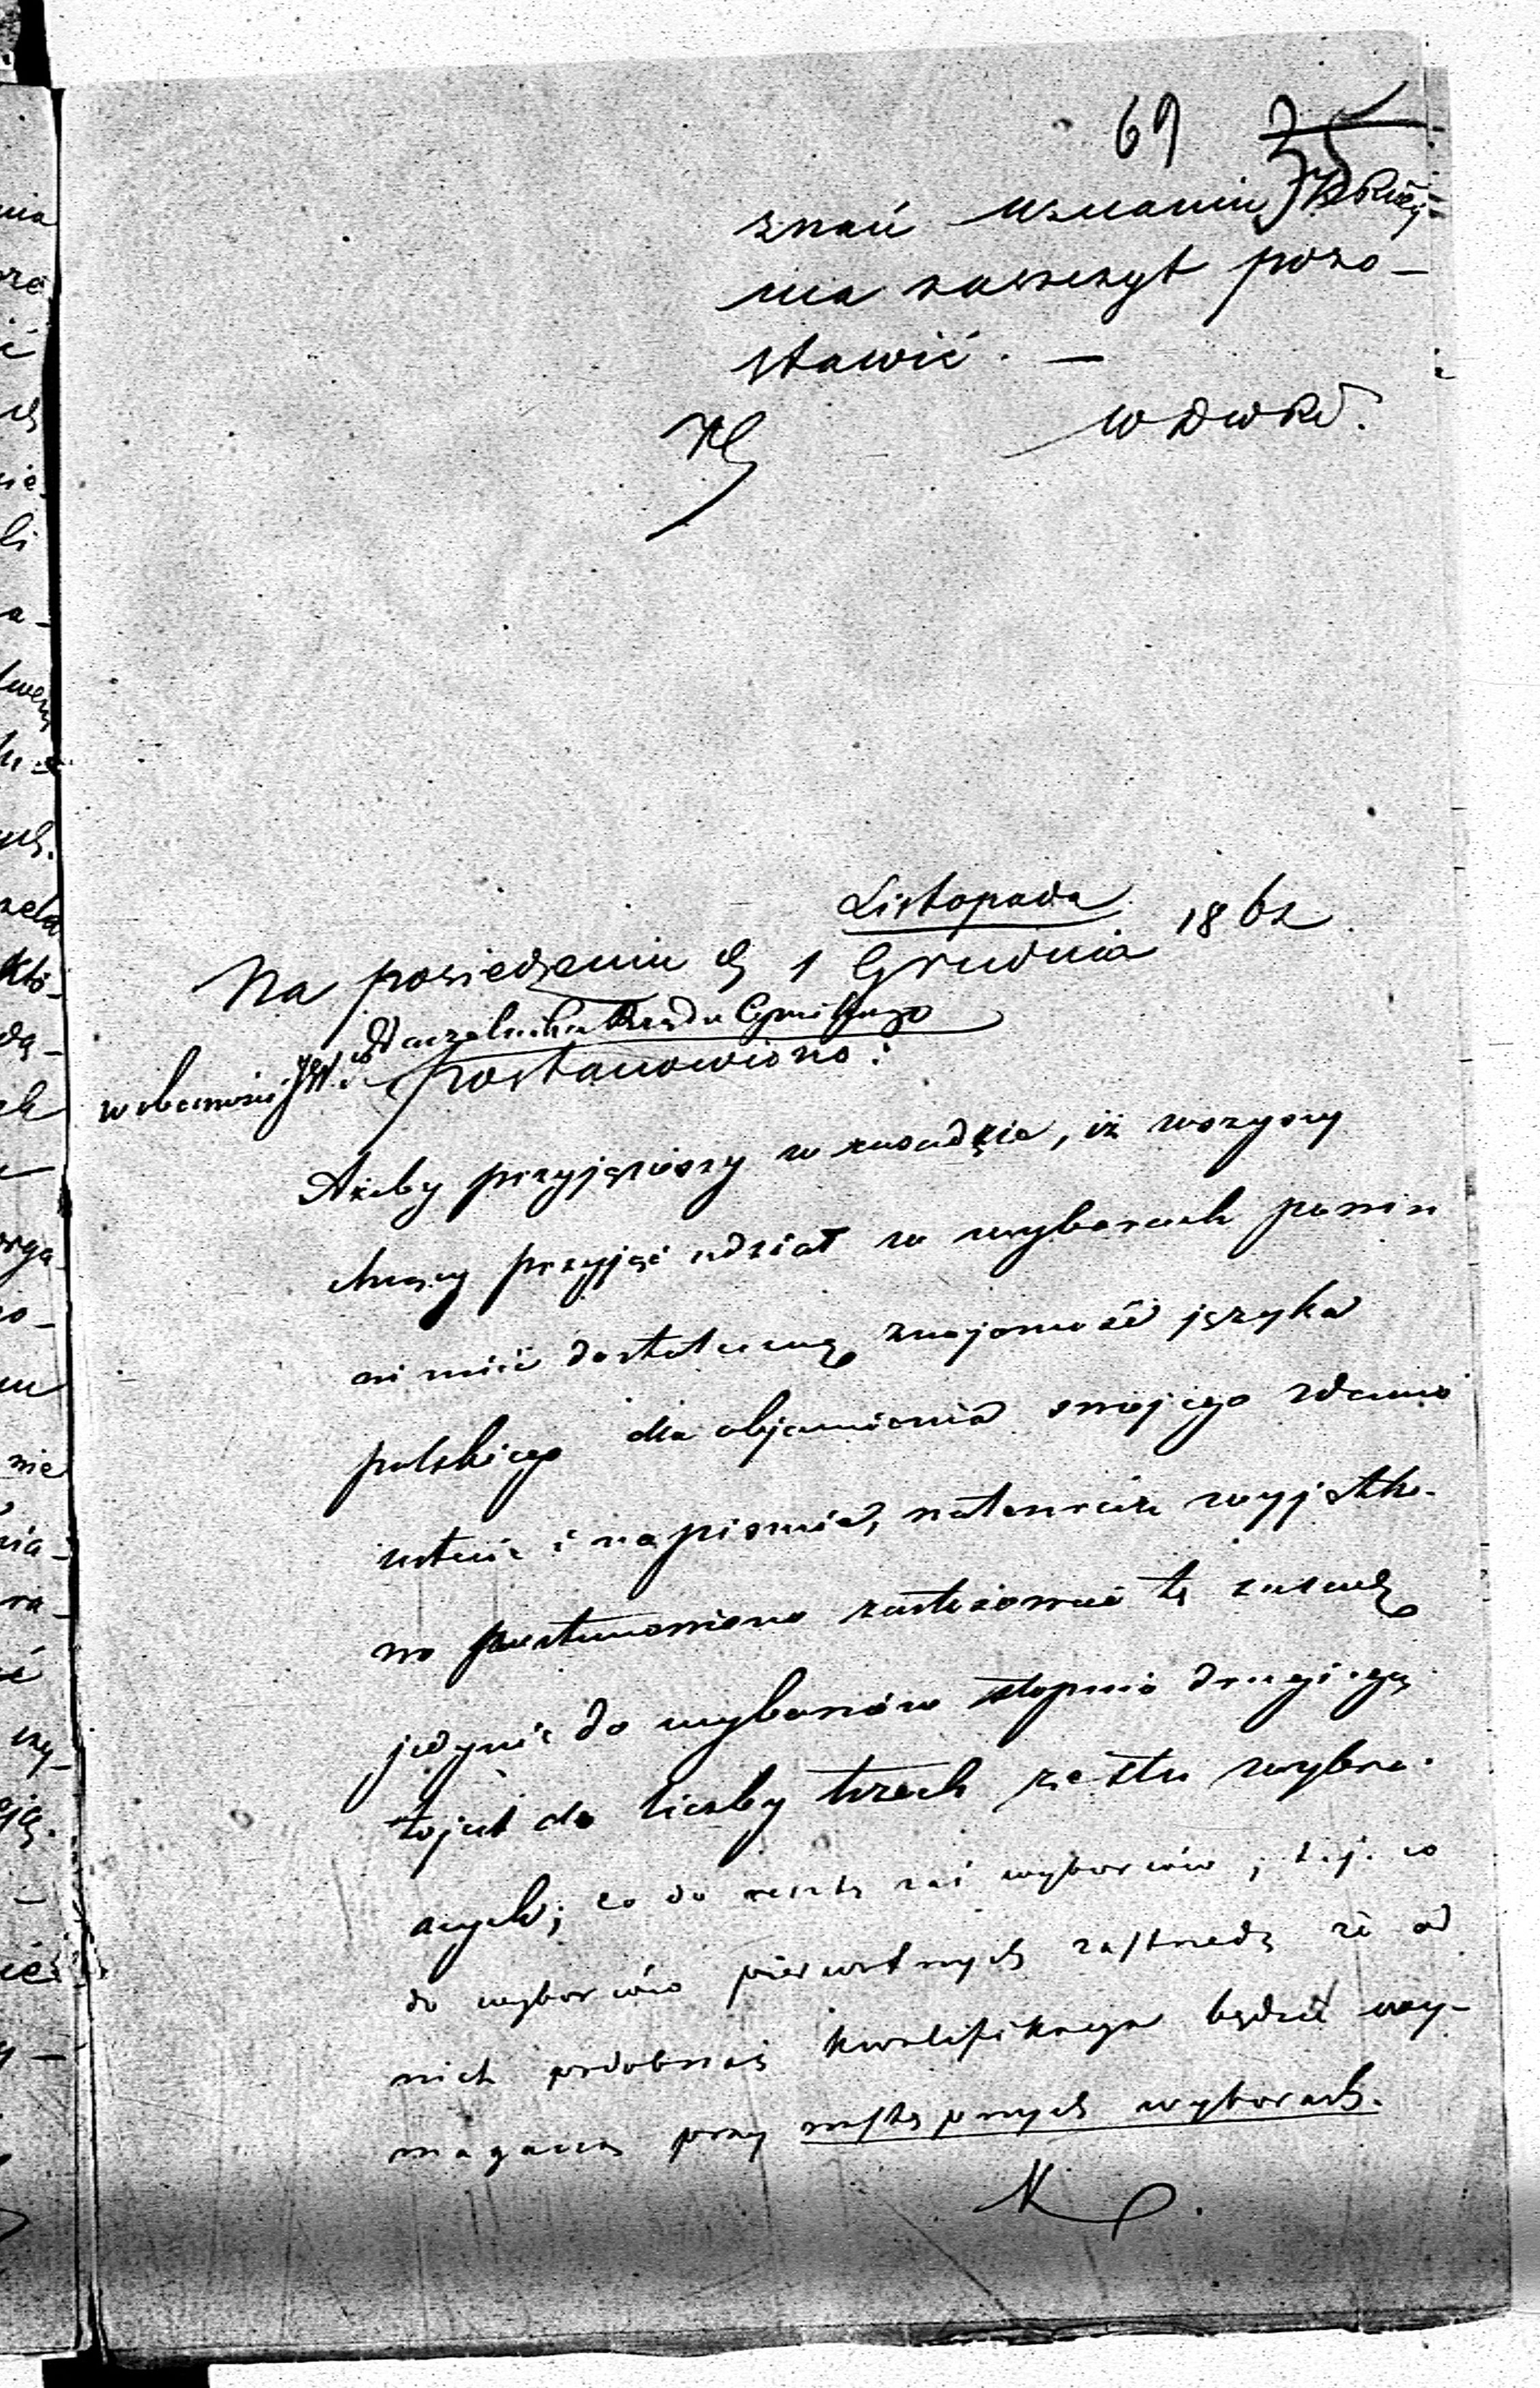 69 35
znań uznaniu
nia zaszczyt pozo-
stawić. —
Listopada
Na posiedzeniu d 1 Grudnia 1862
w obecności JW. Naczelnika Rządu Cywilnego
postanowiono:
Ażeby przyjąwszy w zasadzie, iż wszyscy
chcący przyjąć udział w wyborach powin
ni mieć dostateczną znajomość języka
polskiego dla objawienia swojego zdania
ustnie i na piśmie, natenczas wyjątko-
wo postanowiono zastosować tę zasadę
jedynie do wyborców stopnia drugiego
to jest do liczby trzech ze stu wybra-
nych; co do reszty zaś wyborców, t.j. co
do wyborców pierwotnych zastrzedz że od
nich podobnaż kwalifikacya będzie wy-
maganą przy następnych wyborach.